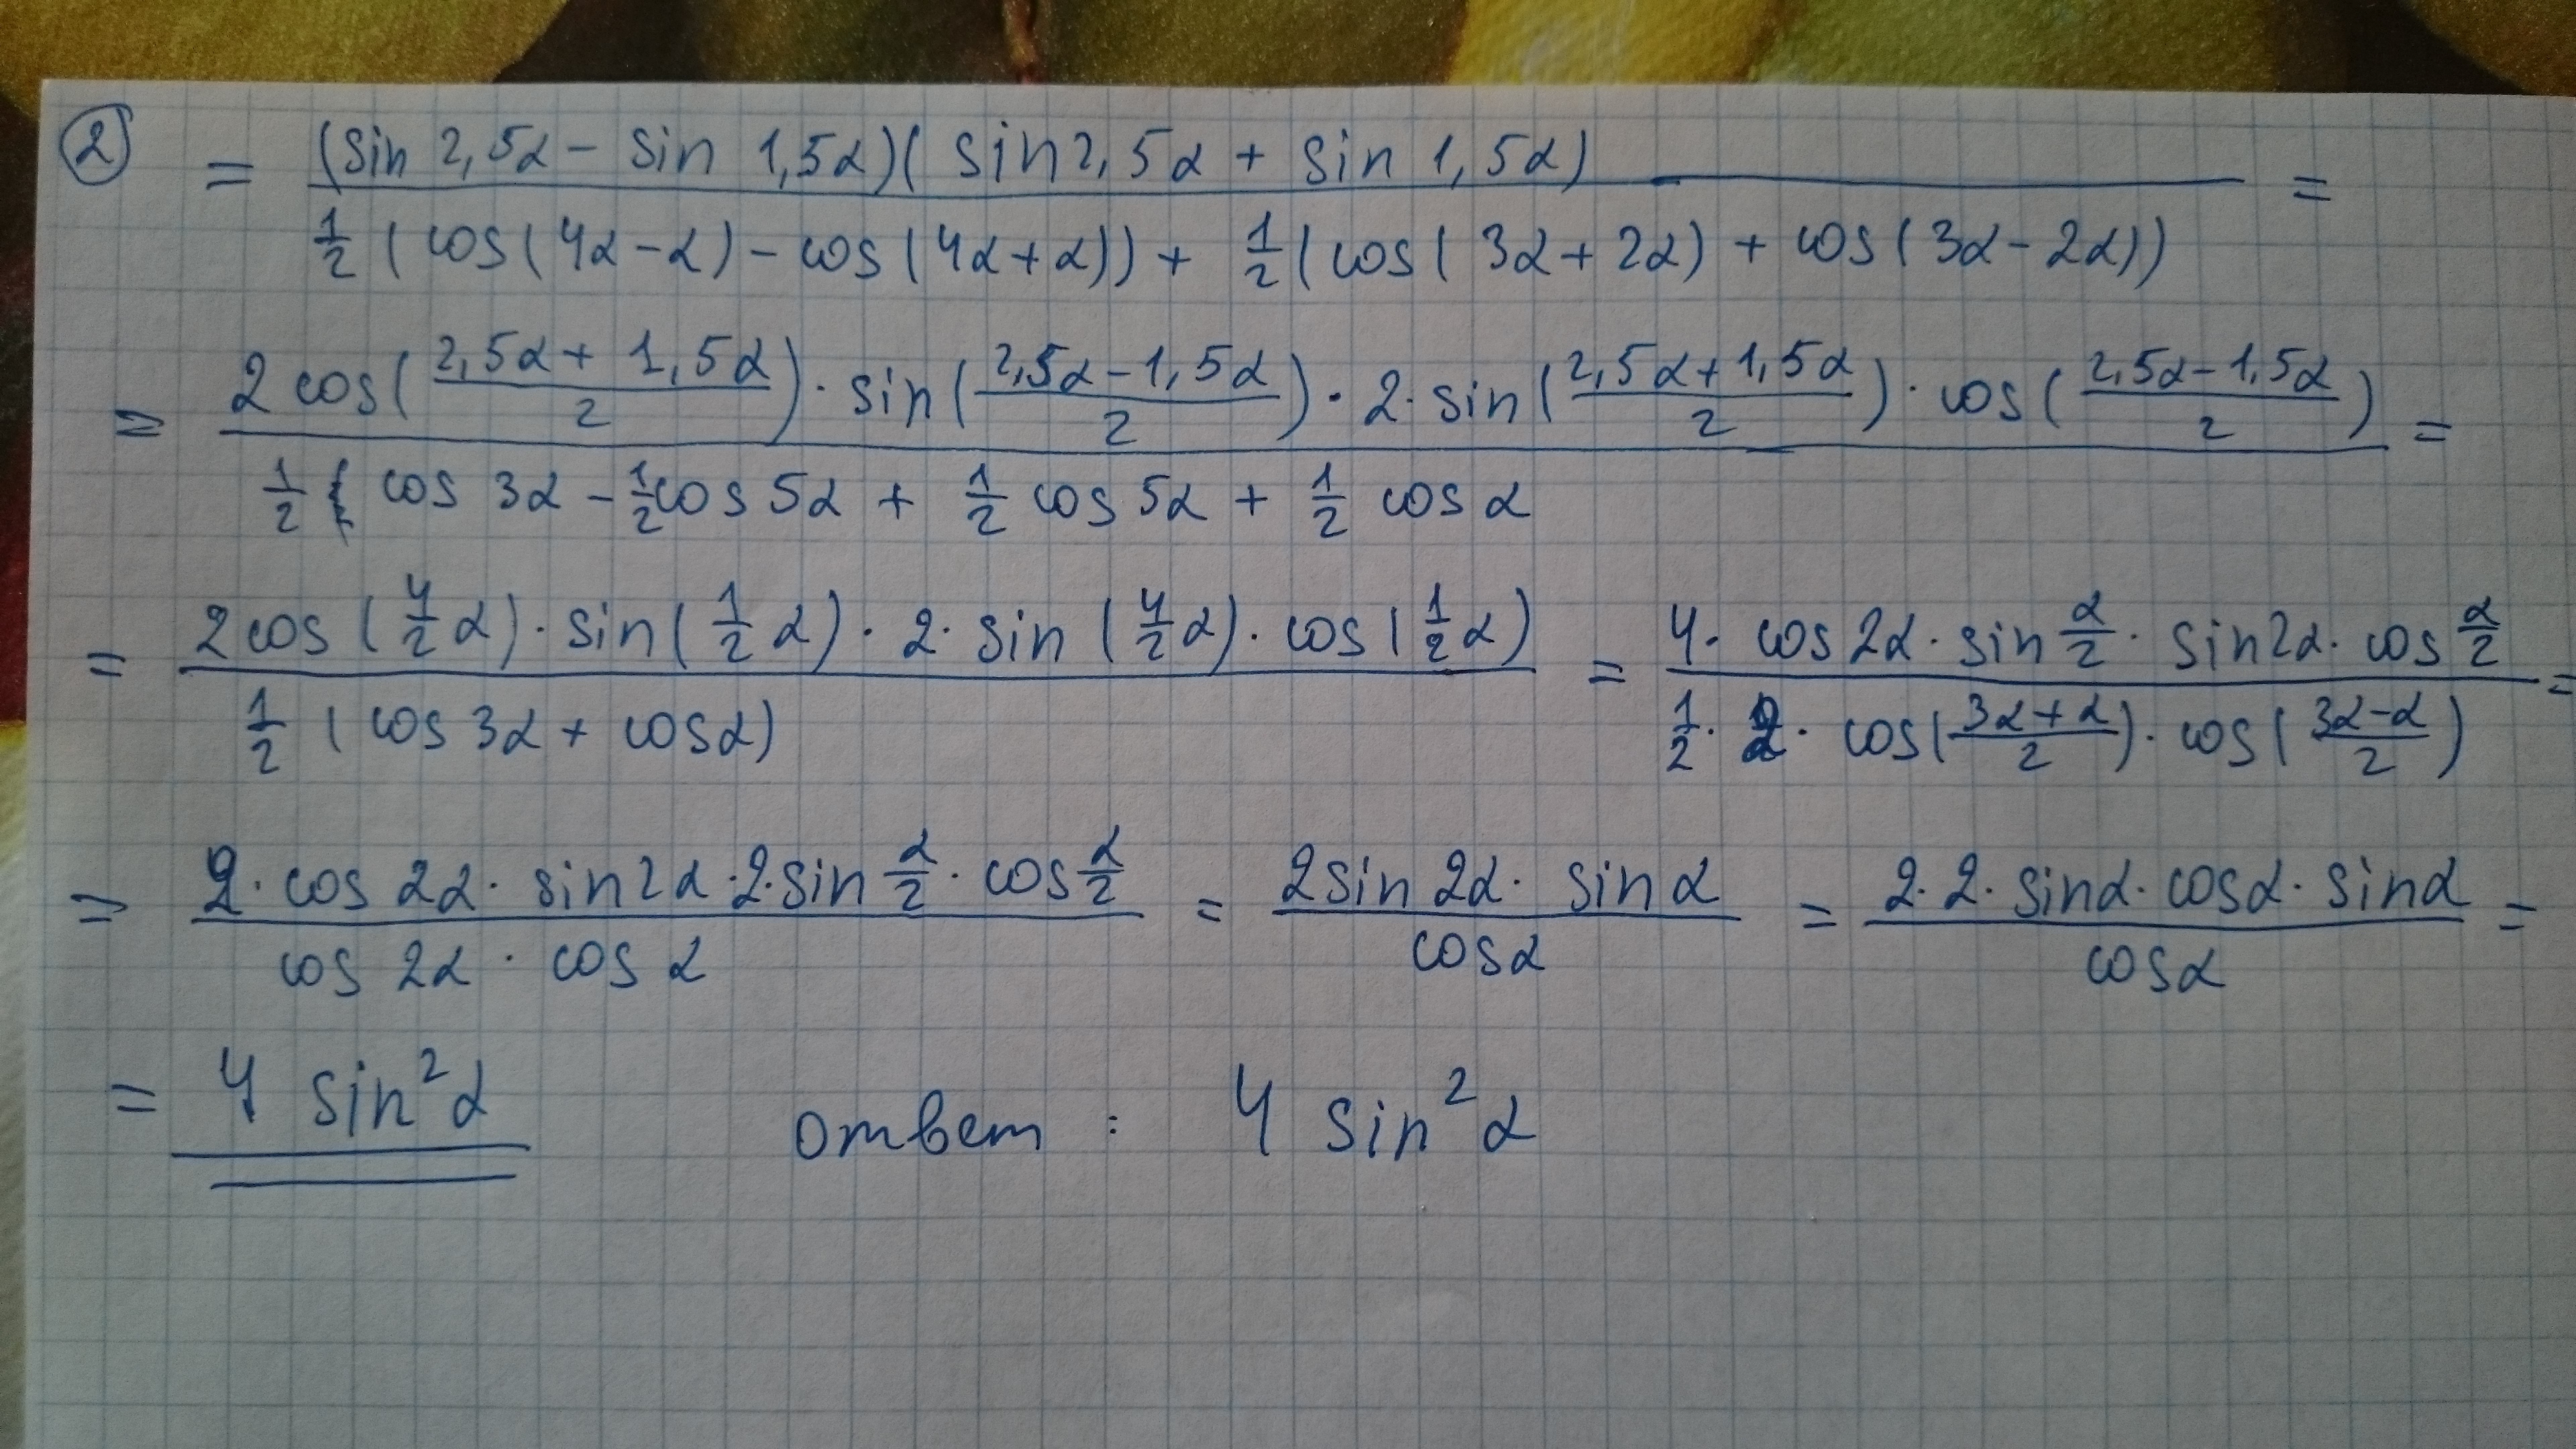 ② = (sin 2,5α − sin 1,5α)(sin 2,5α + sin 1,5α) / (1/2 (cos(4α−α) − cos(4α+α)) + 1/2 (cos(3α+2α) + cos(3α−2α))) =
= 2 cos((2,5α + 1,5α)/2) · sin((2,5α − 1,5α)/2) · 2 · sin((2,5α + 1,5α)/2) · cos((2,5α − 1,5α)/2) / (1/2 cos 3α − 1/2 cos 5α + 1/2 cos 5α + 1/2 cos α) =
= 2 cos(4/2 α) · sin(1/2 α) · 2 · sin(4/2 α) · cos(1/2 α) / (1/2 (cos 3α + cos α)) = 4 · cos 2α · sin α/2 · sin 2α · cos α/2 / (1/2 · 2 · cos((3α+α)/2) · cos((3α−α)/2)) =
= 2 · cos 2α · sin 2α · 2 · sin α/2 · cos α/2 / (cos 2α · cos α) = 2 sin 2α · sin α / cos α = 2 · 2 · sin α · cos α · sin α / cos α =
= 4 sin² α ответ : 4 sin² α